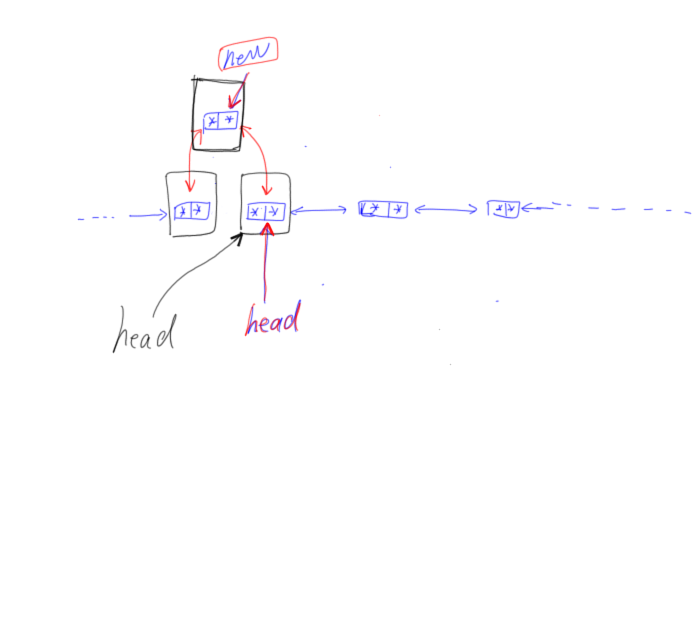 new
* *
* *
* *
* *
* *
head
head